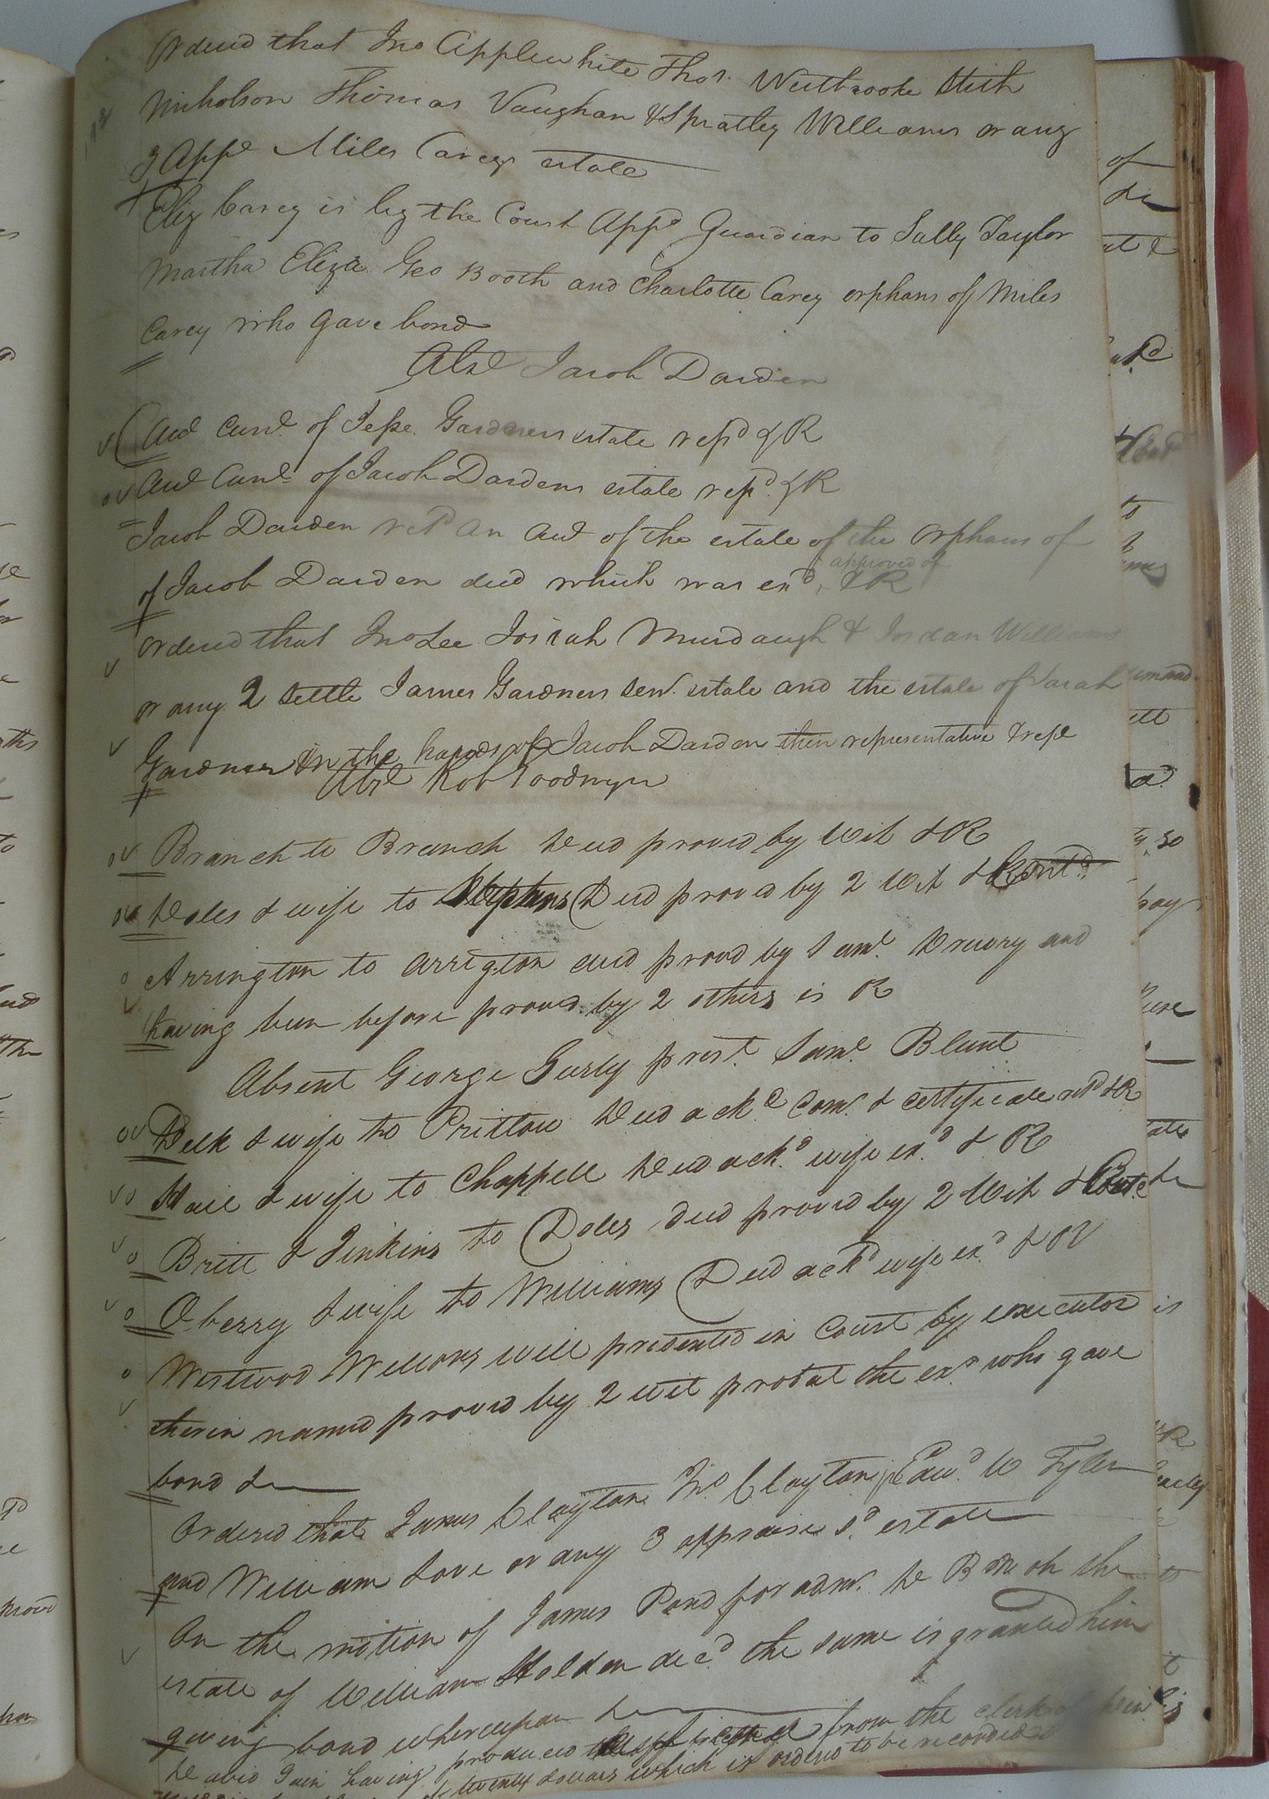 Ordered that Jno Applewhite Thos. Westbrooke Stith
Nicholson Thomas Vaughan & Spratley Williams or any
3 Appe Miles Careys estate
Eliz Carey is by the Court Appd Guardian to Sally Taylor
Martha Eliza Geo Booth and Charlotte Carey orphans of Miles
Carey who gave bond
Abst Jacob Darden
Aud Curt. of Jesse Gardners estate retd & R
Aud Curt. of Jacob Dardens estate retd. & R
Jacob Darden retd an Aud of the estate of the orphans of
of Jacob Darden decd which was exd, approved of & R
Ordered that Jno Lee Josiah Murdaugh & Jordan Williams
or any 2 settle James Gardners Senr. estate and the estate of Sarah
Gardner in the hands of Jacob Darden their representative & repe
Abst Rob Goodwyn
Branch to Branch Deed proved by Wit & R
Doles & wife to Stephens Deed proved by 2 Wit & Contd.
Arrington to Arrigton deed proved by Saml. Drewry and
having been before proved by 2 others is R
Absent George Gurly prest. Saml. Blunt
Delk & wife to Pritlow Deed ackd Com. & certificate retd & R
Hail & wife to Chappell Deed ackd. wife exd. & R
Britt & Jinkins to Doles Deed proved by 2 Wit & Contd
Oberry & wife to Williams Deed ackd wife exd & R
Westwood Wellons will presented in Court by executor
therein named proved by 2 wit probat the exr who gave
bond &
Ordered that James Clayton Jno Clayton Edwd. W Tyler
and William Love or any 3 appraise sd. estate
On the motion of James Pond for admr. de B non on the
estate of William Holden decd. the same is granted him
giving bond whereupon &
David Fuin having produced from the clerk of
twenty dollars which is ordered to be recorded